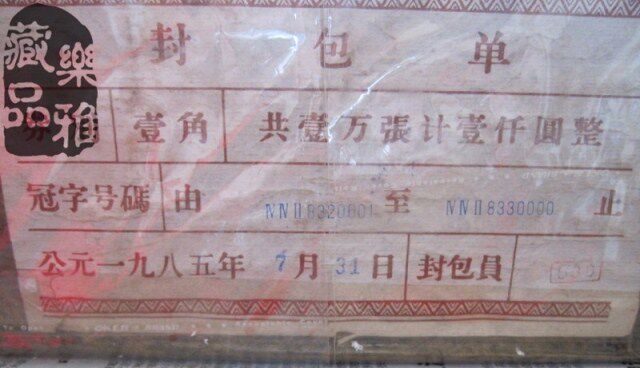 藏品
樂雅
封包单
壹角 共壹万張计壹仟圓整
冠字号碼 由 NNII8320001 至 NNII8330000 止
公元一九八五年 7月31日 封包員